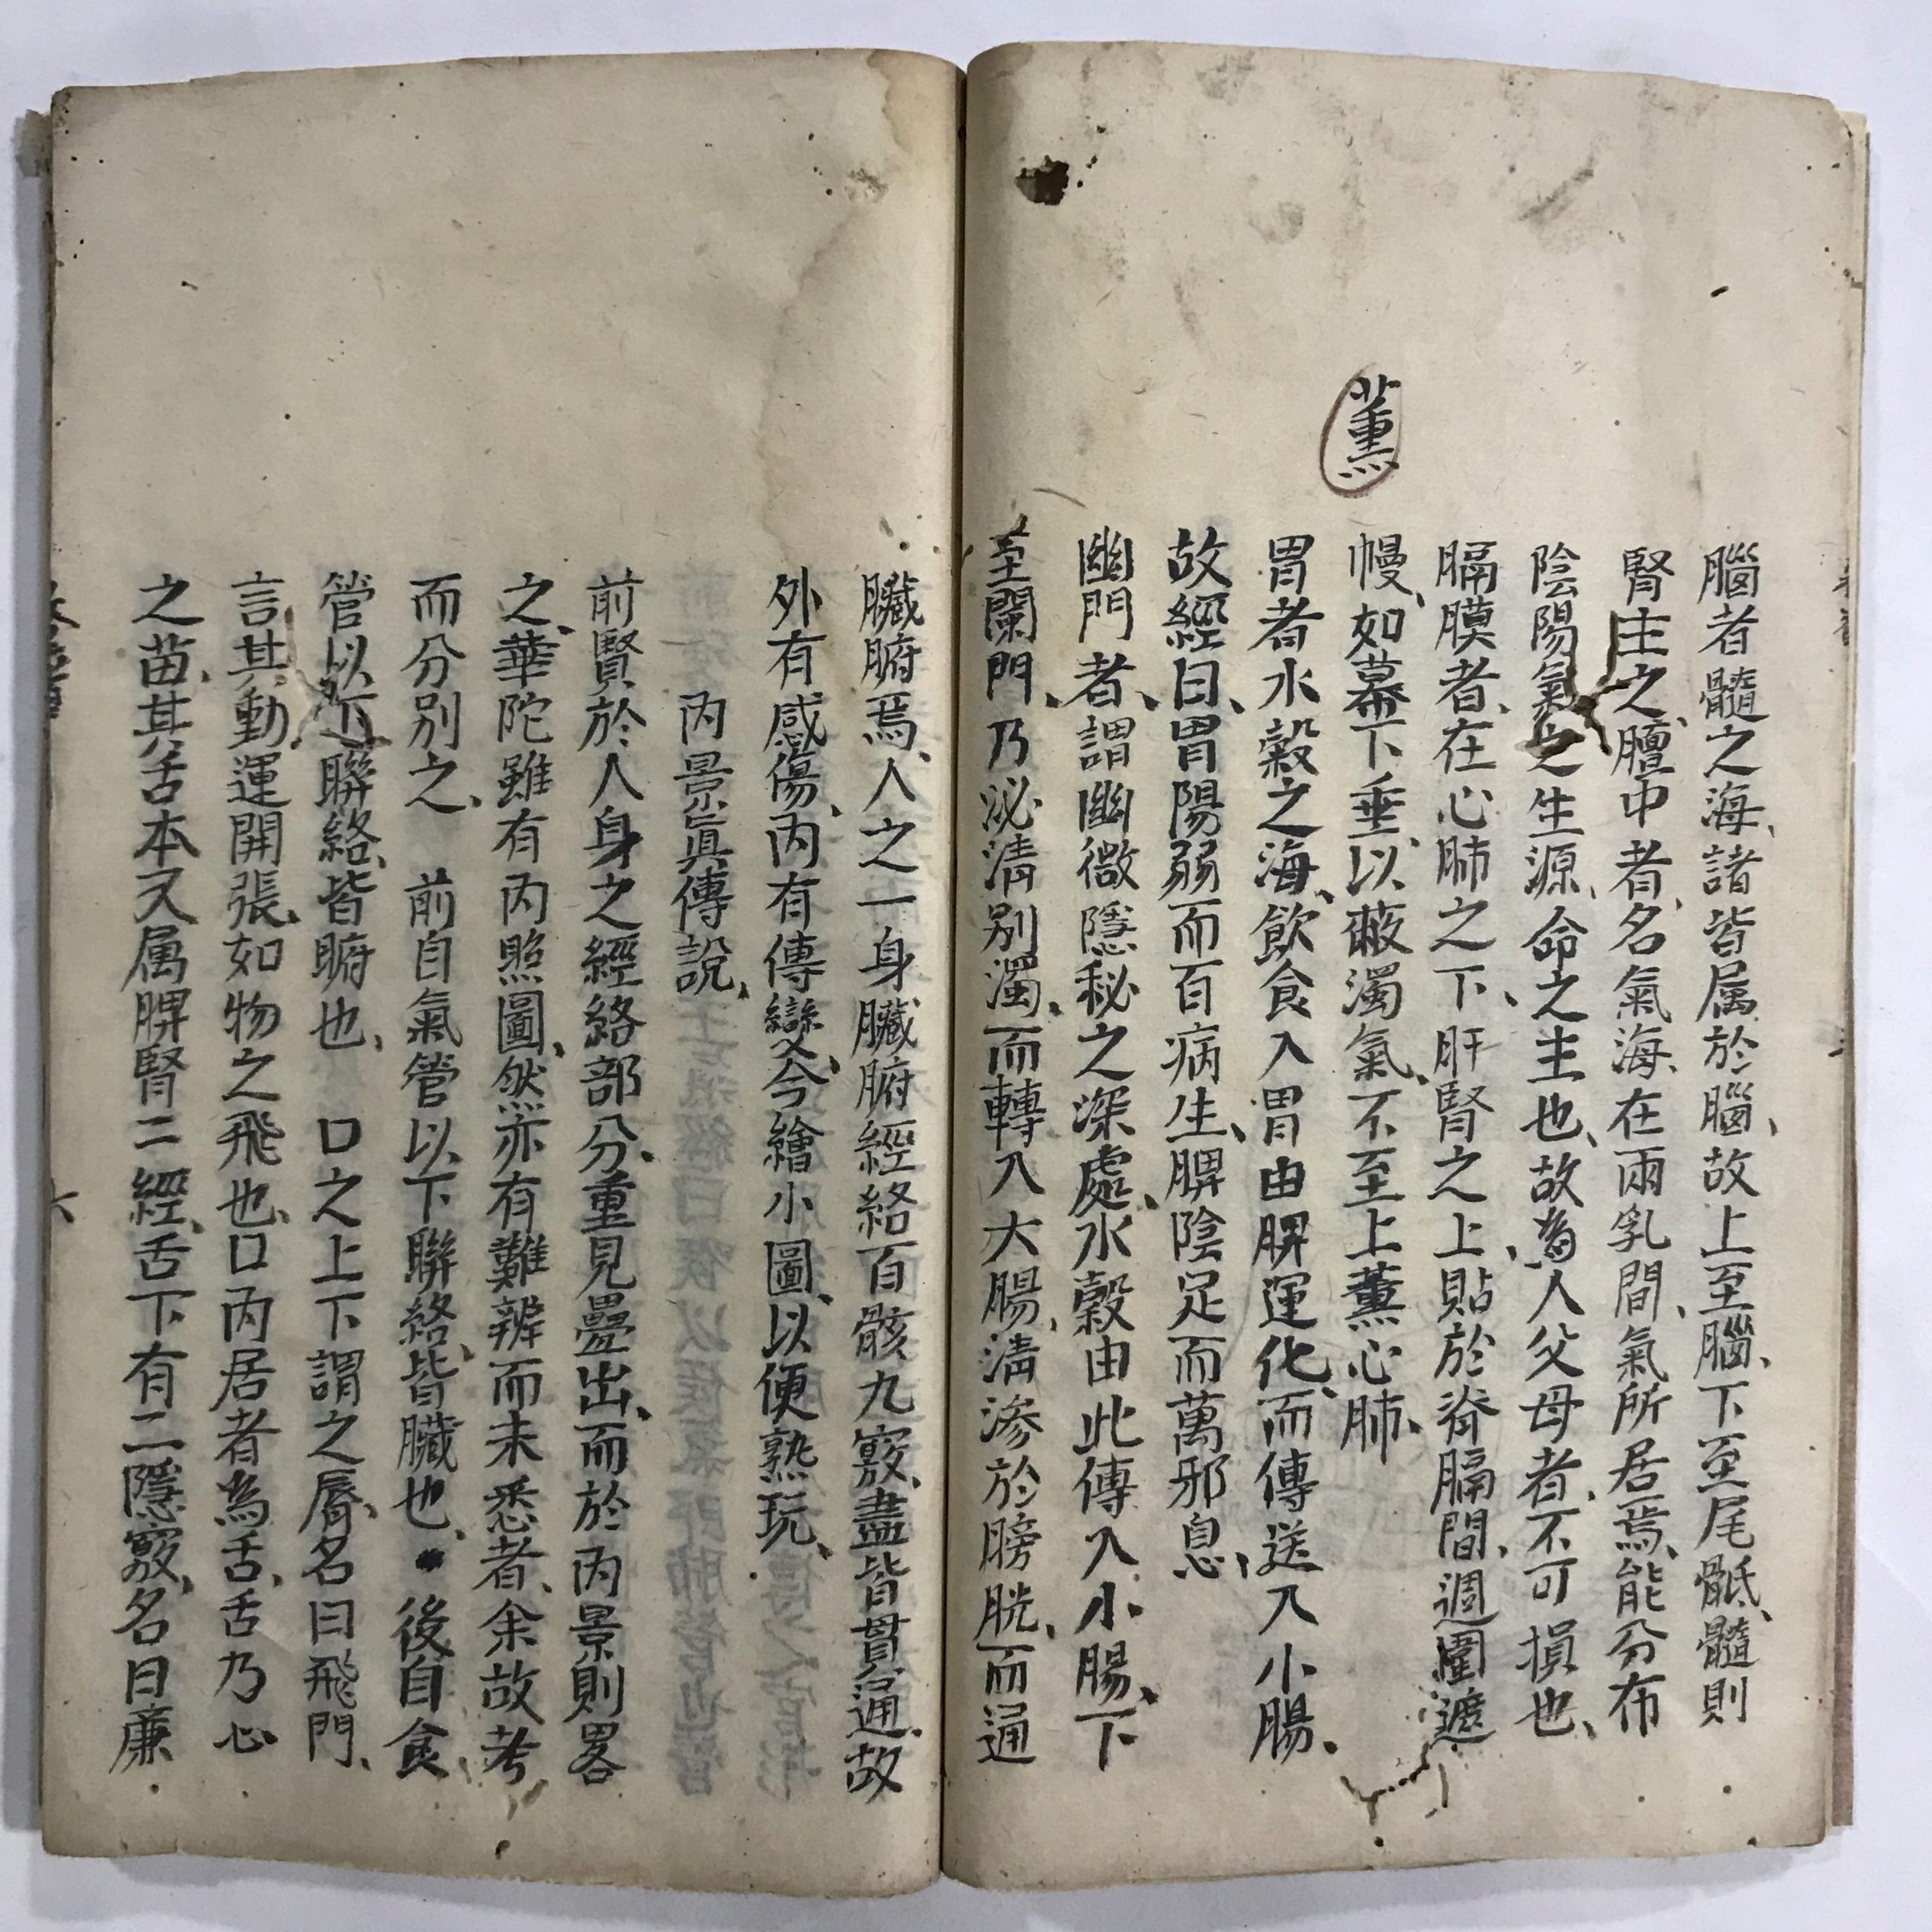 薰
腦者髓之海、諸皆属於腦、故上至腦、下至尾骶、髓則
腎主之、膻中者、名氣海、在兩乳間、氣所居焉、能分布
陰陽氣之生源、命之主也、故為人父母者、不可損也、
膈膜者、在心肺之下、肝腎之上、貼於脊膈間、週圍遮
幔、如幕下垂、以蔽濁氣、不至上薰心肺、
胃者水穀之海、飲食入胃由脾運化、而傳送入小腸、
故經曰、胃陽弱而百病生、脾陰足而萬邪息、
幽門者、謂幽微隱秘之深處、水穀由此傳入小腸、下
至闌門、乃泌清别濁、而轉入大腸、清滲於膀胱、而通
臟腑焉、人之一身臟腑經絡百骸九竅、盡皆貫通、故
外有感傷、內有傳變、今繪小圖、以便熟玩、
內景真傳說、
前賢於人身之經絡部分、重見疊出、而於內景則畧
之、華陀雖有內照圖、然亦有難辨而未悉者、余故考
而分别之、　前自氣管以下聯絡、皆臟也、　後自食
管以下聯絡、皆腑也、　口之上下謂之唇、名曰飛門、
言其動運開張、如物之飛也、口內居者為舌、舌乃心
之苗、其舌本又属脾腎二經、舌下有二隱竅、名曰廉
六